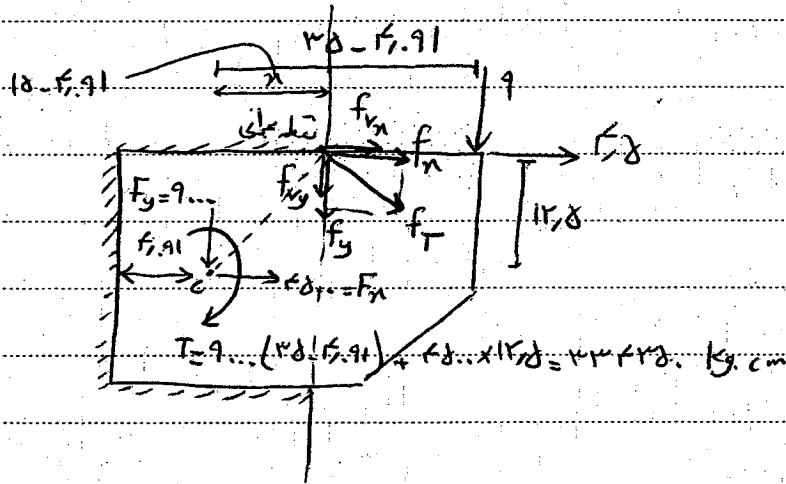 ۳۵ - ۴,۹۱
۱۵ - ۴,۹۱
x
۹
نقطه بحرانی
f_{Vx}
f_x
۴,۵
F_y = ۹۰۰۰
f_{Vy}
f_y
f_T
۱۲,۵
۴,۹۱
C
۴۵۰۰ = F_x
T = ۹۰۰۰ (۳۵ - ۴,۹۱) + ۴۵۰۰ × ۱۲,۵ = ۳۳۴۳۵۰ kg.cm